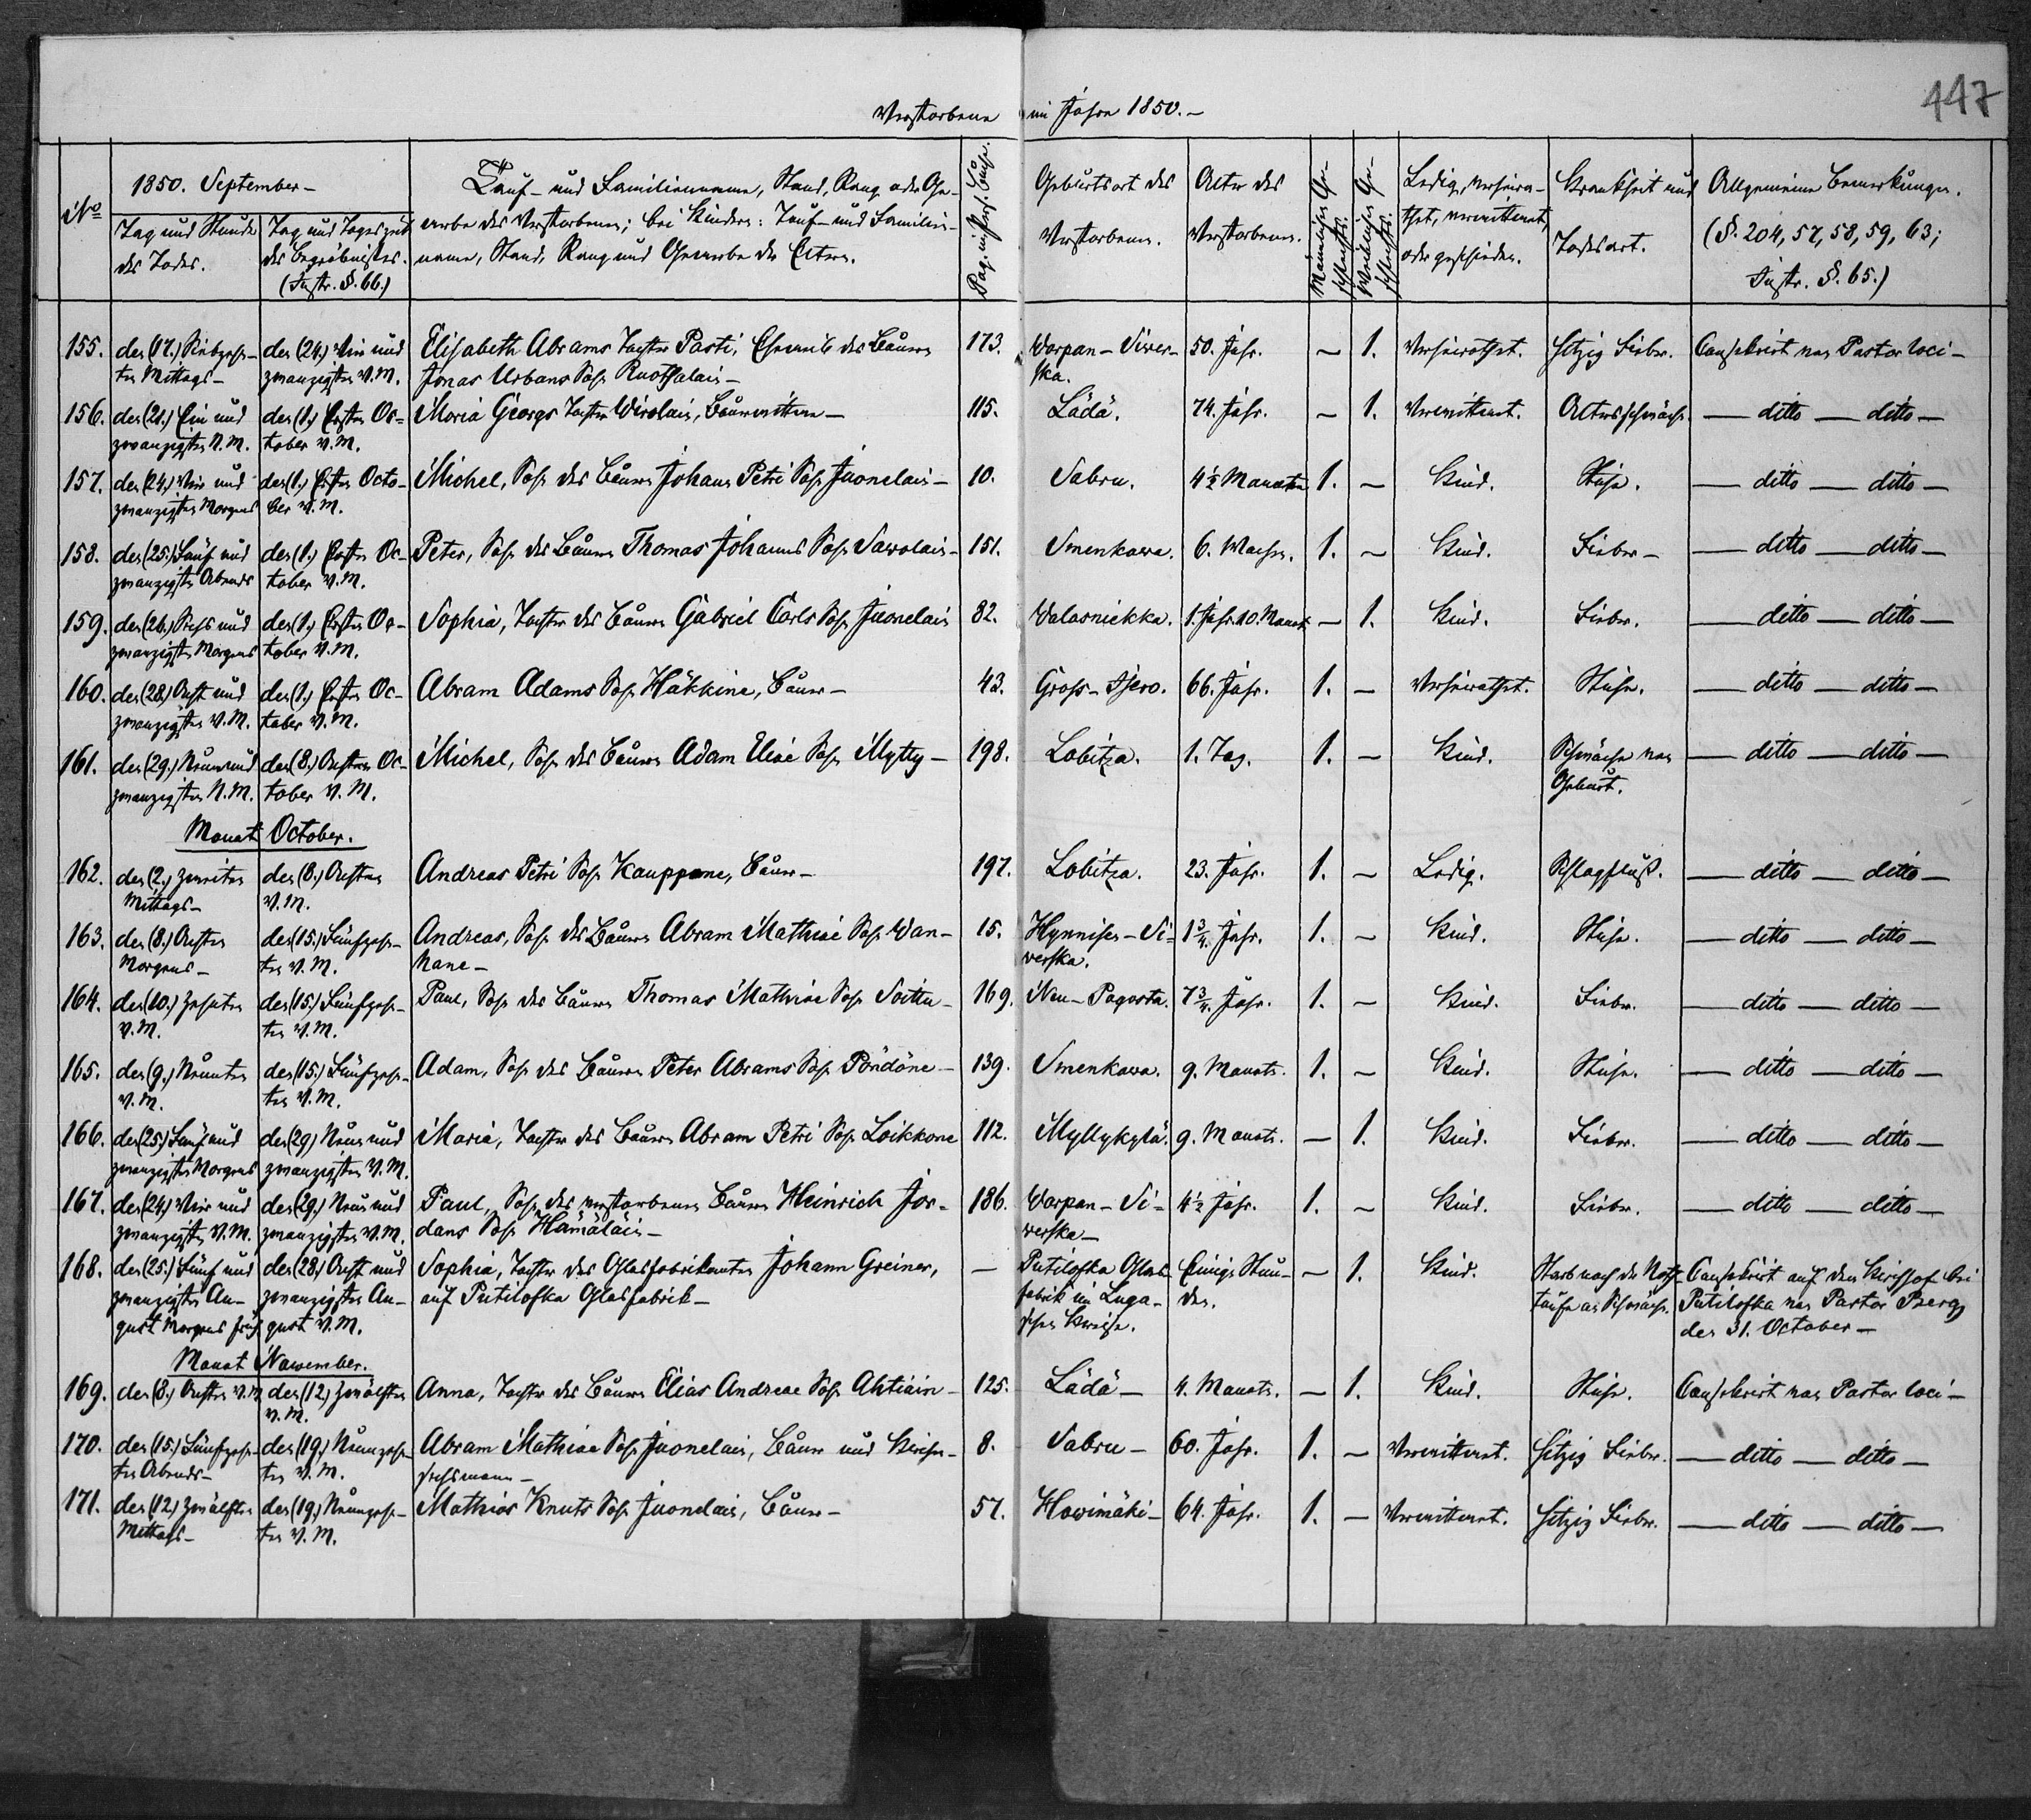 447
Verstorbene im Jahre 1850.-
No
1850. September-
Tag und Stunde des Todes.
Tag und Tageszeit des Begräbnisses. (Instr. §. 66.)
Tauf- und Familienname, Stand, Rang oder Ge-
werbe des Verstorbenen; bei Kindern: Tauf- und Familien-
name, Stand, Rang und Gewerbe der Eltern.
Pag. im Pers. Buche.
Geburtsort des Verstorbenen.
Alter des Verstorbenen.
Männlichen Ge-
schlechts.
Weiblichen Ge-
schlechts.
Ledig, verheira-
thet, verwittwet,
oder geschieden.
Krankheit und
Todesart.
Allgemeine Bemerkungen.
(§. 204, 57, 58, 59, 63;
Instr. §. 65.)
155. den (17.) Siebzehn- den (24.) Vier und Elisabeth Abrams Tochter Pasti, Eheweib des Bauern 173. Warpan-Siwer- 50. Jahr. - 1. Verheirathet. hitzig Fieber. Consekrirt von Pastor loci-
ten Mittags- zwanzigsten V. M. Jonas Urbans Sohn Ruotsalain- ska.
156. den (21.) Ein und den (1.) Ersten Oc- Maria Georgs Tochter Wirolain, Bauerwittwe- 115. Lädä. 74. Jahr. - 1. Verwittwet. Altersschwäche. - ditto - ditto -
zwanzigsten N. M. tober V. M.
157. den (24.) Vier und den (1.) Ersten Octo- Michel, Sohn des Bauern Johann Petri Sohn Juonelain- 10. Sabru. 4½ Monaten 1. - Kind. Husten. - ditto - ditto -
zwanzigsten Morgens ber V. M.
158. den (25.) Fünf und den (1.) Ersten Oc- Peter, Sohn des Bauern Thomas Johanns Sohn Sawolain- 151. Smenkowa. 6. Wochen. 1. - Kind. Fieber- - ditto - ditto -
zwanzigsten Abends tober V. M.
159. den (26.) Sechs und den (1.) Ersten Oc- Sophia, Tochter des Bauern Gabriel Carls Sohn Juonelain 82. Walasniekka. 1. Jahr. 10. Monat - 1. Kind. Fieber. - ditto - ditto -
zwanzigsten Morgens tober V. M.
160. den (28.) Acht und den (1.) Ersten Oc- Abram Adams Sohn Häkkine, Bauer- 43. Gross- 66. Jahr. 1. - Verheirathet. Husten. - ditto - ditto -
zwanzigsten V. M. tober V. M.
161. den (29.) Neun und den (8.) Achten Oc- Michel, Sohn des Bauern Adam Eliae Sohn Mytty- 198. Lobitza. 1. Tag. 1. - Kind. Schwäche von - ditto - ditto -
zwanzigsten N. M. tober V. M. Geburt.
Monat October.
162. den (2.) zweiten den (8.) Achten Andreas Petri Sohn Kauppane, Bauer- 197. Lobitza. 23. Jahr. 1. - Ledig. Schlagfluß. - ditto - ditto -
Mittags- V. M.
163. den (8.) Achten den (15.) Fünfzehn- Andreas, Sohn des Bauern Abram Mathiae Sohn Wan- 15. Hynnisen-Si- 1¾. Jahr. 1. - Kind. Husten. - ditto - ditto -
Morgens- ten V. M. hane- werska.
164. den (10.) Zehnten den (15.) Fünfzehn- Paul, Sohn des Bauern Thomas Mathiae Sohn Soittu- 169. Neu-Pogosta. 7¾. Jahr. 1. - Kind. Fieber. - ditto - ditto -
V. M. ten V. M.
165. den (9.) Neunten den (15.) Fünfzehn- Adam, Sohn des Bauern Peter Abrams Sohn Pöndöne- 139. Smenkowa. 9. Monate. 1. - Kind. Husten. - ditto - ditto -
V. M. ten V. M.
166. den (25.) Fünf und den (29.) Neun und Maria, Tochter des Bauern Abram Petri Sohn Loikkone 112. Myllykylä. 9. Monate. - 1. Kind. Fieber. - ditto - ditto -
zwanzigsten Morgens zwanzigsten V. M.
167. den (24.) Vier und den (29.) Neun und Paul, Sohn des verstorbenen Bauern Heinrich Jor- 186. Warpan-Si- 4½ Jahr. 1. - Kind. Fieber. - ditto - ditto -
zwanzigsten V. M. zwanzigsten V. M. dans Sohn Hämäläin- werska-
168. den (25.) Fünf und den (28.) Acht und Sophia, Tochter des Glasfabrikanten Johann Greiner, - Putilofka Glas- Einige Stun- - 1. Kind. Starb nach der Noth- Consekrirt auf dem Kirchhof bei
zwanzigsten Au- zwanzigsten Au- auf Putilofka Glasfabrik- fabrik im Luga- den. taufe an Schwäche. Putilofka von Pastor Bergg
gust Morgens früh gust V. M. schen Kreise. den 31. October-
Monat November.
169. den (8.) Achten V. M. den (12.) Zwölften Anna, Tochter des Bauern Elias Andreae Sohn Ahtiain- 125. Lädä- 4. Monate. - 1. Kind. Husten. Consekrirt von Pastor loci-
V. M.
170. den (15.) Fünfzehn- den (19.) Neunzehn- Abram Mathiae Sohn Juonelain, Bauer und Kirchen- 8. Sabru- 60. Jahr. 1. - Verwittwet. hitzig Fieber. - ditto - ditto -
ten Abends- ten V. M. sechsmann-
171. den (12.) Zwölften den (19.) Neunzehn- Mathias Knuts Sohn Juonelain, Bauer- 57. Howimäki- 64. Jahr. 1. - Verwittwet. hitzig Fieber. - ditto - ditto -
Mittags- ten V. M.